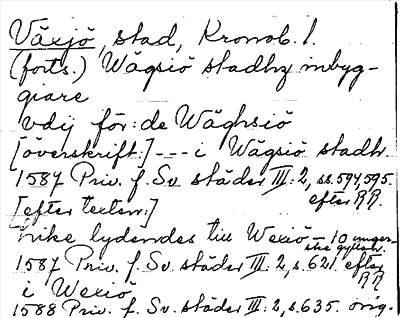 Växjö, stad, Kronob. l.
(forts.) Wägsiö stadhz inbyg-
giare
vdij för: de Wäghsiö
[överskrift:] --- i Wägsiö stadh.
1587 Priv. f. Sv. städer III: 2, ss. 594, 595.
efter RR.
[efter texten:]
hike lydendes till Wexiö - 10 unger-
ske gyllen.
1587 Priv. f. Sv. städer III: 2, s. 621. efter
RR
i Wexiö
1588 Priv. f. Sv. städer III: 2, s. 635. orig.